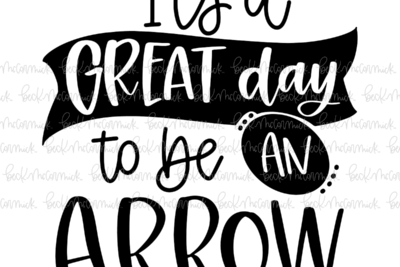 It's a
GREAT day
to be AN
ARROW